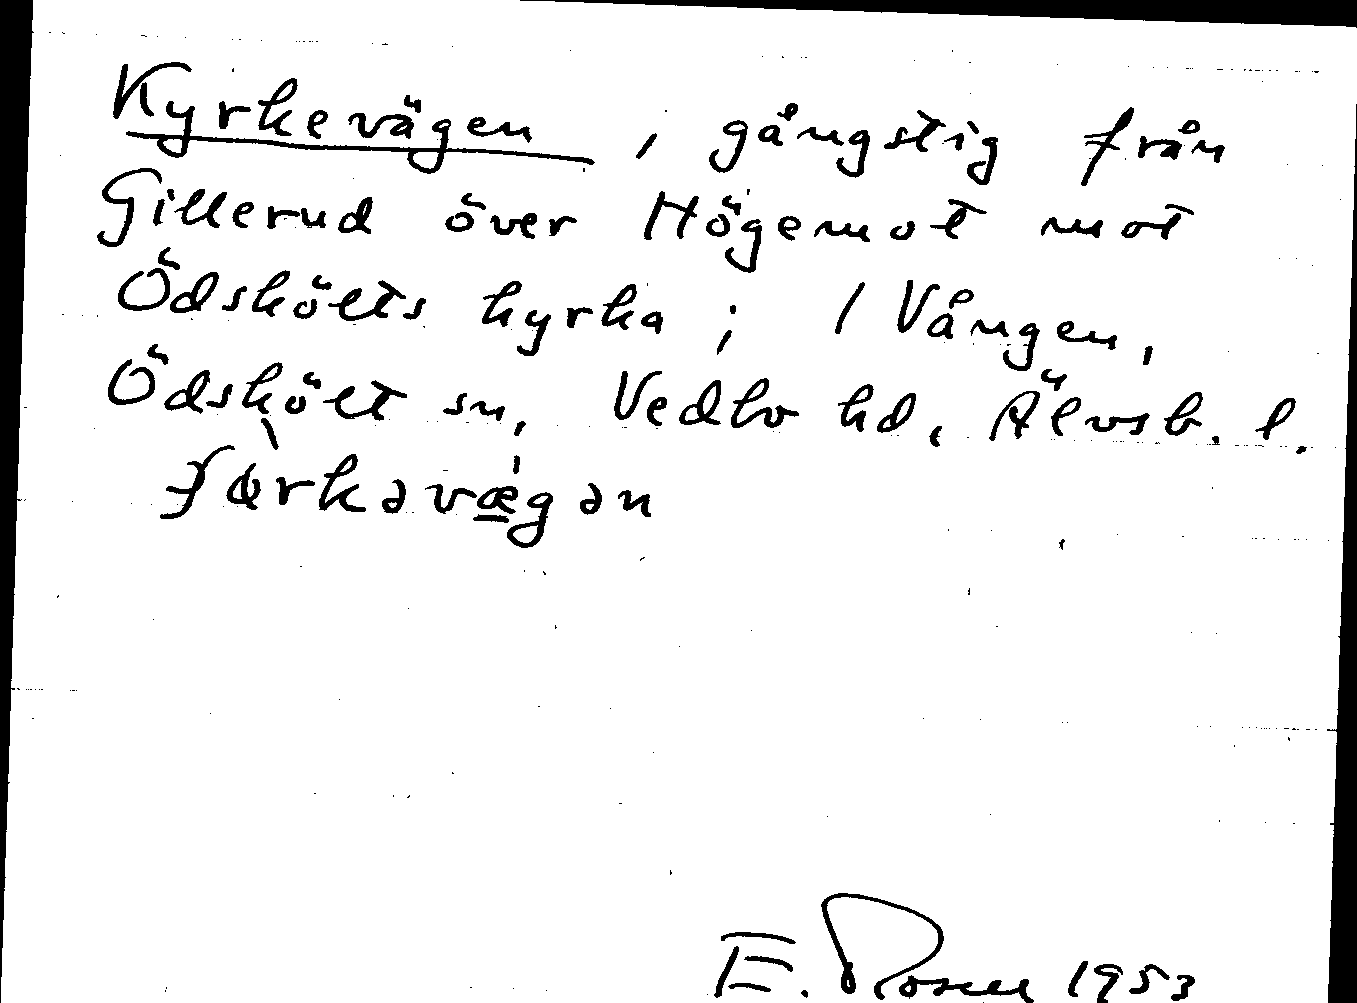 Kyrkevägen, gångstig från
Gillerud över Högemot mot
Ödskölts kyrka; / Vången,
Ödskölt sn, Vedbo hd, Älvsb. l.
E. Rosell 1953